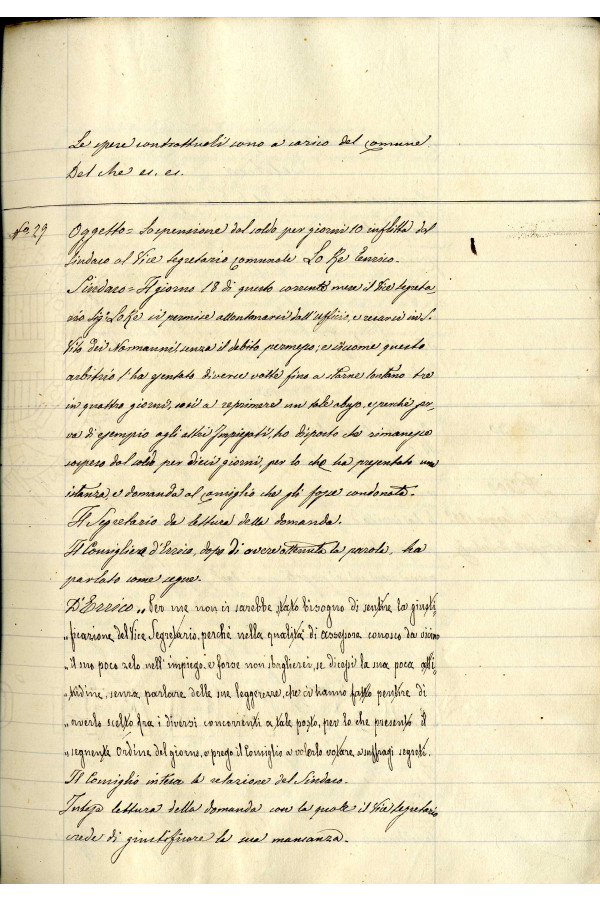 Le spese contrattuali sono a carico del comune
Del che ec. ec.
No. 29
Oggetto = Sospensione dal soldo per giorni 10 inflitta dal
Sindaco al Vice Segretario Comunale Lo Re Enrico.
Sindaco = Il giorno 18 di questo corrente mese il Vice Segreta
rio Sigr. Lo Re si permise allontanarsi dall'ufficio, e recarsi in S.
Vito dei Normanni, senza il debito permesso; e siccome questo
arbitrio l'ha esentato diverse volte fino a starne lontano tre
in quattro giorni, così a reprimere un tale abuso, e perché ser-
va di esempio agli altri Impiegati, ho disposto che rimanesse
sospeso dal soldo per dieci giorni, per lo che ha presentato una
istanza, e domanda al consiglio che gli fosse condonata.
Il Segretario da lettura della domanda.
Il Consigliere d'Errico, dopo di avere ottenuta la parola, ha
parlato come segue.
D'Errico „ Per me non ci sarebbe stato bisogno di sentire la giusti-
„ ficazione del Vice Segretario, perché nella qualità di assessore conosco da vicino
„ il suo poco zelo nell'impiego, e forse non sbaglierei, se dicessi la sua poca atti-
„ tudine, senza parlare delle sue leggerezze, che ci hanno fatto pentire di
„ averlo scelto fra i diversi concorrenti a tale posto, per lo che presento il
„ seguente ordine del giorno, e prego il Consiglio a volerlo votare, a suffragi segreti.
Il Consiglio intesa la relazione del Sindaco.
Intesa lettura della domanda con la quale il Vice Segretario
crede di giustificare la sua mancanza.